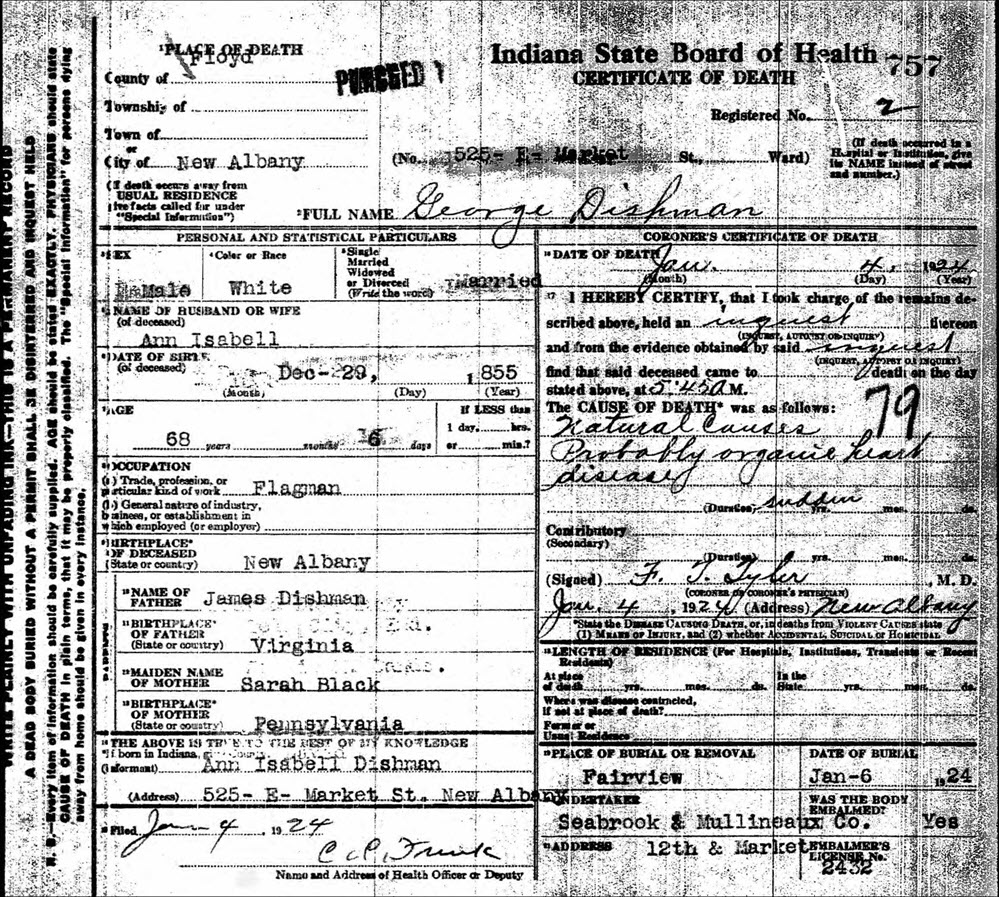 PLACE OF DEATH
County of Floyd
PUNCHED
Indiana State Board of Health 757
CERTIFICATE OF DEATH
Township of
Registered No. 2
Town of
or
City of New Albany
(No. 525- E- Market St., Ward)
(If death occurred in a Hospital or Institution, give its NAME instead of street and number.)
(If death occurs away from
USUAL RESIDENCE
give facts called for under
"Special Information")
FULL NAME George Dishman
PERSONAL AND STATISTICAL PARTICULARS
SEX
Male
Color or Race
White
Single
Married
Widowed
or Divorced
(Write the word)
Married
NAME OF HUSBAND OR WIFE
(of deceased)
Ann Isabell
DATE OF BIRTH
(of deceased)
Dec-29, 1855
(Month) (Day) (Year)
AGE
68 years months 6 days
If LESS than
1 day, hrs.
or min.?
OCCUPATION
(a) Trade, profession, or
particular kind of work Flagman
(b) General nature of industry,
business, or establishment in
which employed (or employer)
BIRTHPLACE
OF DECEASED
(State or country) New Albany
NAME OF
FATHER James Dishman
BIRTHPLACE
OF FATHER
(State or country) Virginia
MAIDEN NAME
OF MOTHER Sarah Black
BIRTHPLACE
OF MOTHER
(State or country) Pennsylvania
THE ABOVE IS TRUE TO THE BEST OF MY KNOWLEDGE
If born in Indiana,
(Informant) Ann Isabell Dishman
(Address) 525- E- Market St. New Albany
Filed Jan 4, 1924
Name and Address of Health Officer or Deputy
CORONER'S CERTIFICATE OF DEATH
DATE OF DEATH
Jan. 4, 1924
(Month) (Day) (Year)
17 I HEREBY CERTIFY, that I took charge of the remains de-
scribed above, held an inquest thereon
(INQUEST, AUTOPSY OR INQUIRY)
and from the evidence obtained by said inquest
(INQUEST, AUTOPSY OR INQUIRY)
find that said deceased came to death on the day
stated above, at 5:45 A M.
The CAUSE OF DEATH* was as follows:
79
Natural Causes
Probably organic heart
disease
(Duration) sudden yrs. mos. ds.
Contributory
(Secondary)
(Duration) yrs. mos. ds.
(Signed) F. T. Tyler, M. D.
(CORONER OR CORONER'S PHYSICIAN)
Jan. 4, 1924 (Address) New Albany
*State the DISEASE CAUSING DEATH, or, in deaths from VIOLENT CAUSES state
(1) MEANS OF INJURY, and (2) whether ACCIDENTAL, SUICIDAL OR HOMICIDAL
LENGTH OF RESIDENCE (For Hospitals, Institutions, Transients or Recent
Residents)
At place
of death yrs. mos. ds.
In the
State yrs. mos. ds.
Where was disease contracted,
if not at place of death?
Former or
Usual Residence
PLACE OF BURIAL OR REMOVAL
Fairview
DATE OF BURIAL
Jan-6 1924
UNDERTAKER
Seabrook & Mullineaux Co.
WAS THE BODY
EMBALMED? Yes
ADDRESS 12th & Market
EMBALMER'S
LICENSE No.
2432
WRITE PLAINLY WITH UNFADING INK—THIS IS A PERMANENT RECORD
A DEAD BODY BURIED WITHOUT A PERMIT SHALL BE DISINTERRED AND INQUEST HELD
N. B.—Every item of information should be carefully supplied. AGE should be stated EXACTLY. PHYSICIANS should state
CAUSE OF DEATH in plain terms, that it may be properly classified. The "Special Information" for persons dying
away from home should be given in every instance.